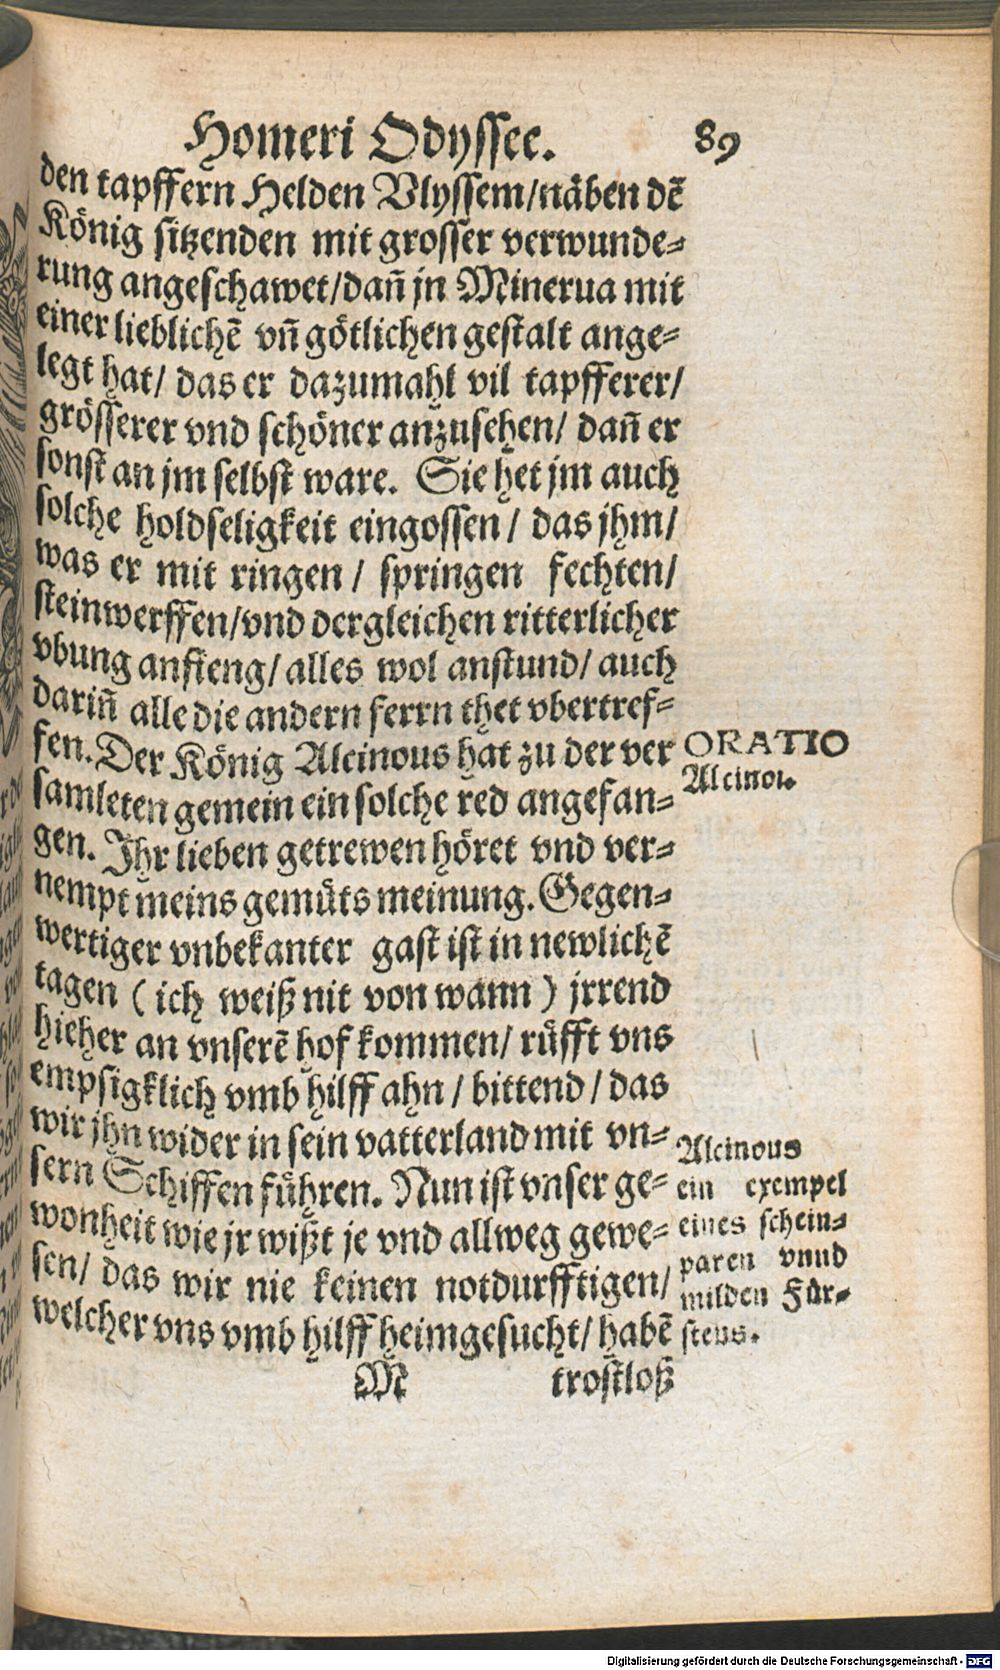 Homeri Odyssee. 89
den tapffern Helden Vlyssem/näben dē
König sitzenden mit grosser verwunde⸗
rung angeschawet/dañ jn Minerua mit
einer lieblichē vñ götlichen gestalt ange⸗
legt hat/ das er dazumahl vil tapfferer/
grösserer vnd schöner anzusehen/ dañ er
sonst an jm selbst ware. Sie het jm auch
solche holdseligkeit eingossen / das jhm/
was er mit ringen / springen fechten/
steinwerffen/vnd dergleichen ritterlicher
vbung anfieng/ alles wol anstund/ auch
dariñ alle die andern ferrn thet vbertref⸗
fen. Der König Alcinous hat zu der ver
samleten gemein ein solche red angefan⸗
gen. Ihr lieben getrewen höret vnd ver⸗
nempt meins gemüts meinung. Gegen⸗
wertiger vnbekanter gast ist in newlichē
tagen ( ich weiß nit von wann ) jrrend
hieher an vnserē hof kommen/ rüfft vns
empsigklich vmb hilff ahn / bittend / das
wir jhn wider in sein vatterland mit vn⸗
sern Schiffen führen. Nun ist vnser ge⸗
wonheit wie jr wißt je vnd allweg gewe⸗
sen/ das wir nie keinen notdurfftigen/
welcher vns vmb hilff heimgesucht/ habē
M trostloß
ORATIO
Alcinoi.
Alcinous
ein exempel
eines schein⸗
paren vnnd
milden Für⸗
stens.
Digitalisierung gefördert durch die Deutsche Forschungsgemeinschaft - DFG